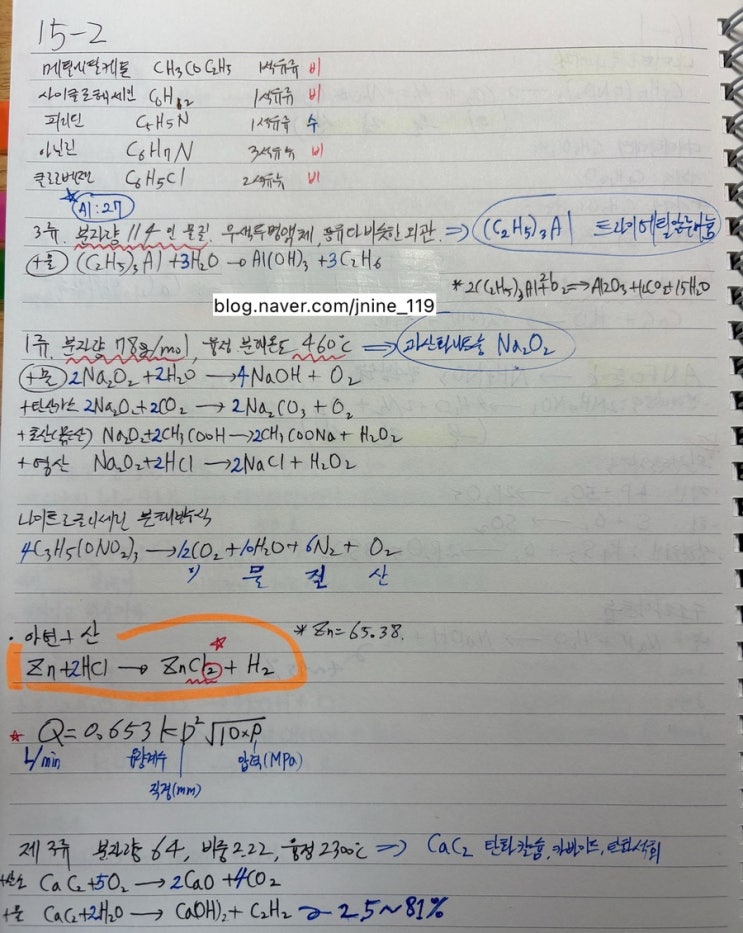 15-2
메틸에틸케톤 CH3COC2H5 1석유류 비
사이클로헥세인 C6H12 1석유류 비
피리딘 C5H5N 1석유류 수
아닐린 C6H7N 3석유류 비
클로로벤젠 C6H5Cl 2석유류 비
Al:27
3류. 분자량 114인 물질. 무색투명액체, 등유와 비슷한 외관. ⇒ (C2H5)3Al 트라이에틸알루미늄
+물 (C2H5)3Al + 3H2O → Al(OH)3 + 3C2H6
*2(C2H5)3Al+21O2 ⇒ Al2O3+12CO2+15H2O
blog.naver.com/jnine_119
1류. 분자량 78g/mol, 융점. 분해온도 460℃ ⇒ 과산화나트륨 Na2O2
+물 2Na2O2 + 2H2O → 4NaOH + O2
+탄산가스 2Na2O2+2CO2 → 2Na2CO3 + O2
+초산 Na2O2+2CH3COOH → 2CH3COONa + H2O2
+염산 Na2O2+2HCl → 2NaCl + H2O2
나이트로글리세린 분해반응식
4C3H5(ONO2)3 → 12CO2 + 10H2O + 6N2 + O2
이 물 질 산
· 아연 + 산 *Zn=65.38.
Zn+2HCl → ZnCl2 + H2
* Q=0.653kD²√10×P
L/min 유량계수 압력(MPa)
직경(mm)
제3류 분자량 64, 비중 2.22, 융점 2300℃ ⇒ CaC2 탄화칼슘, 카바이드, 탄화석회
+산소 CaC2+5O2 → 2CaO+4CO2
+물 CaC2+2H2O → Ca(OH)2 + C2H2 ~ 2.5~81%